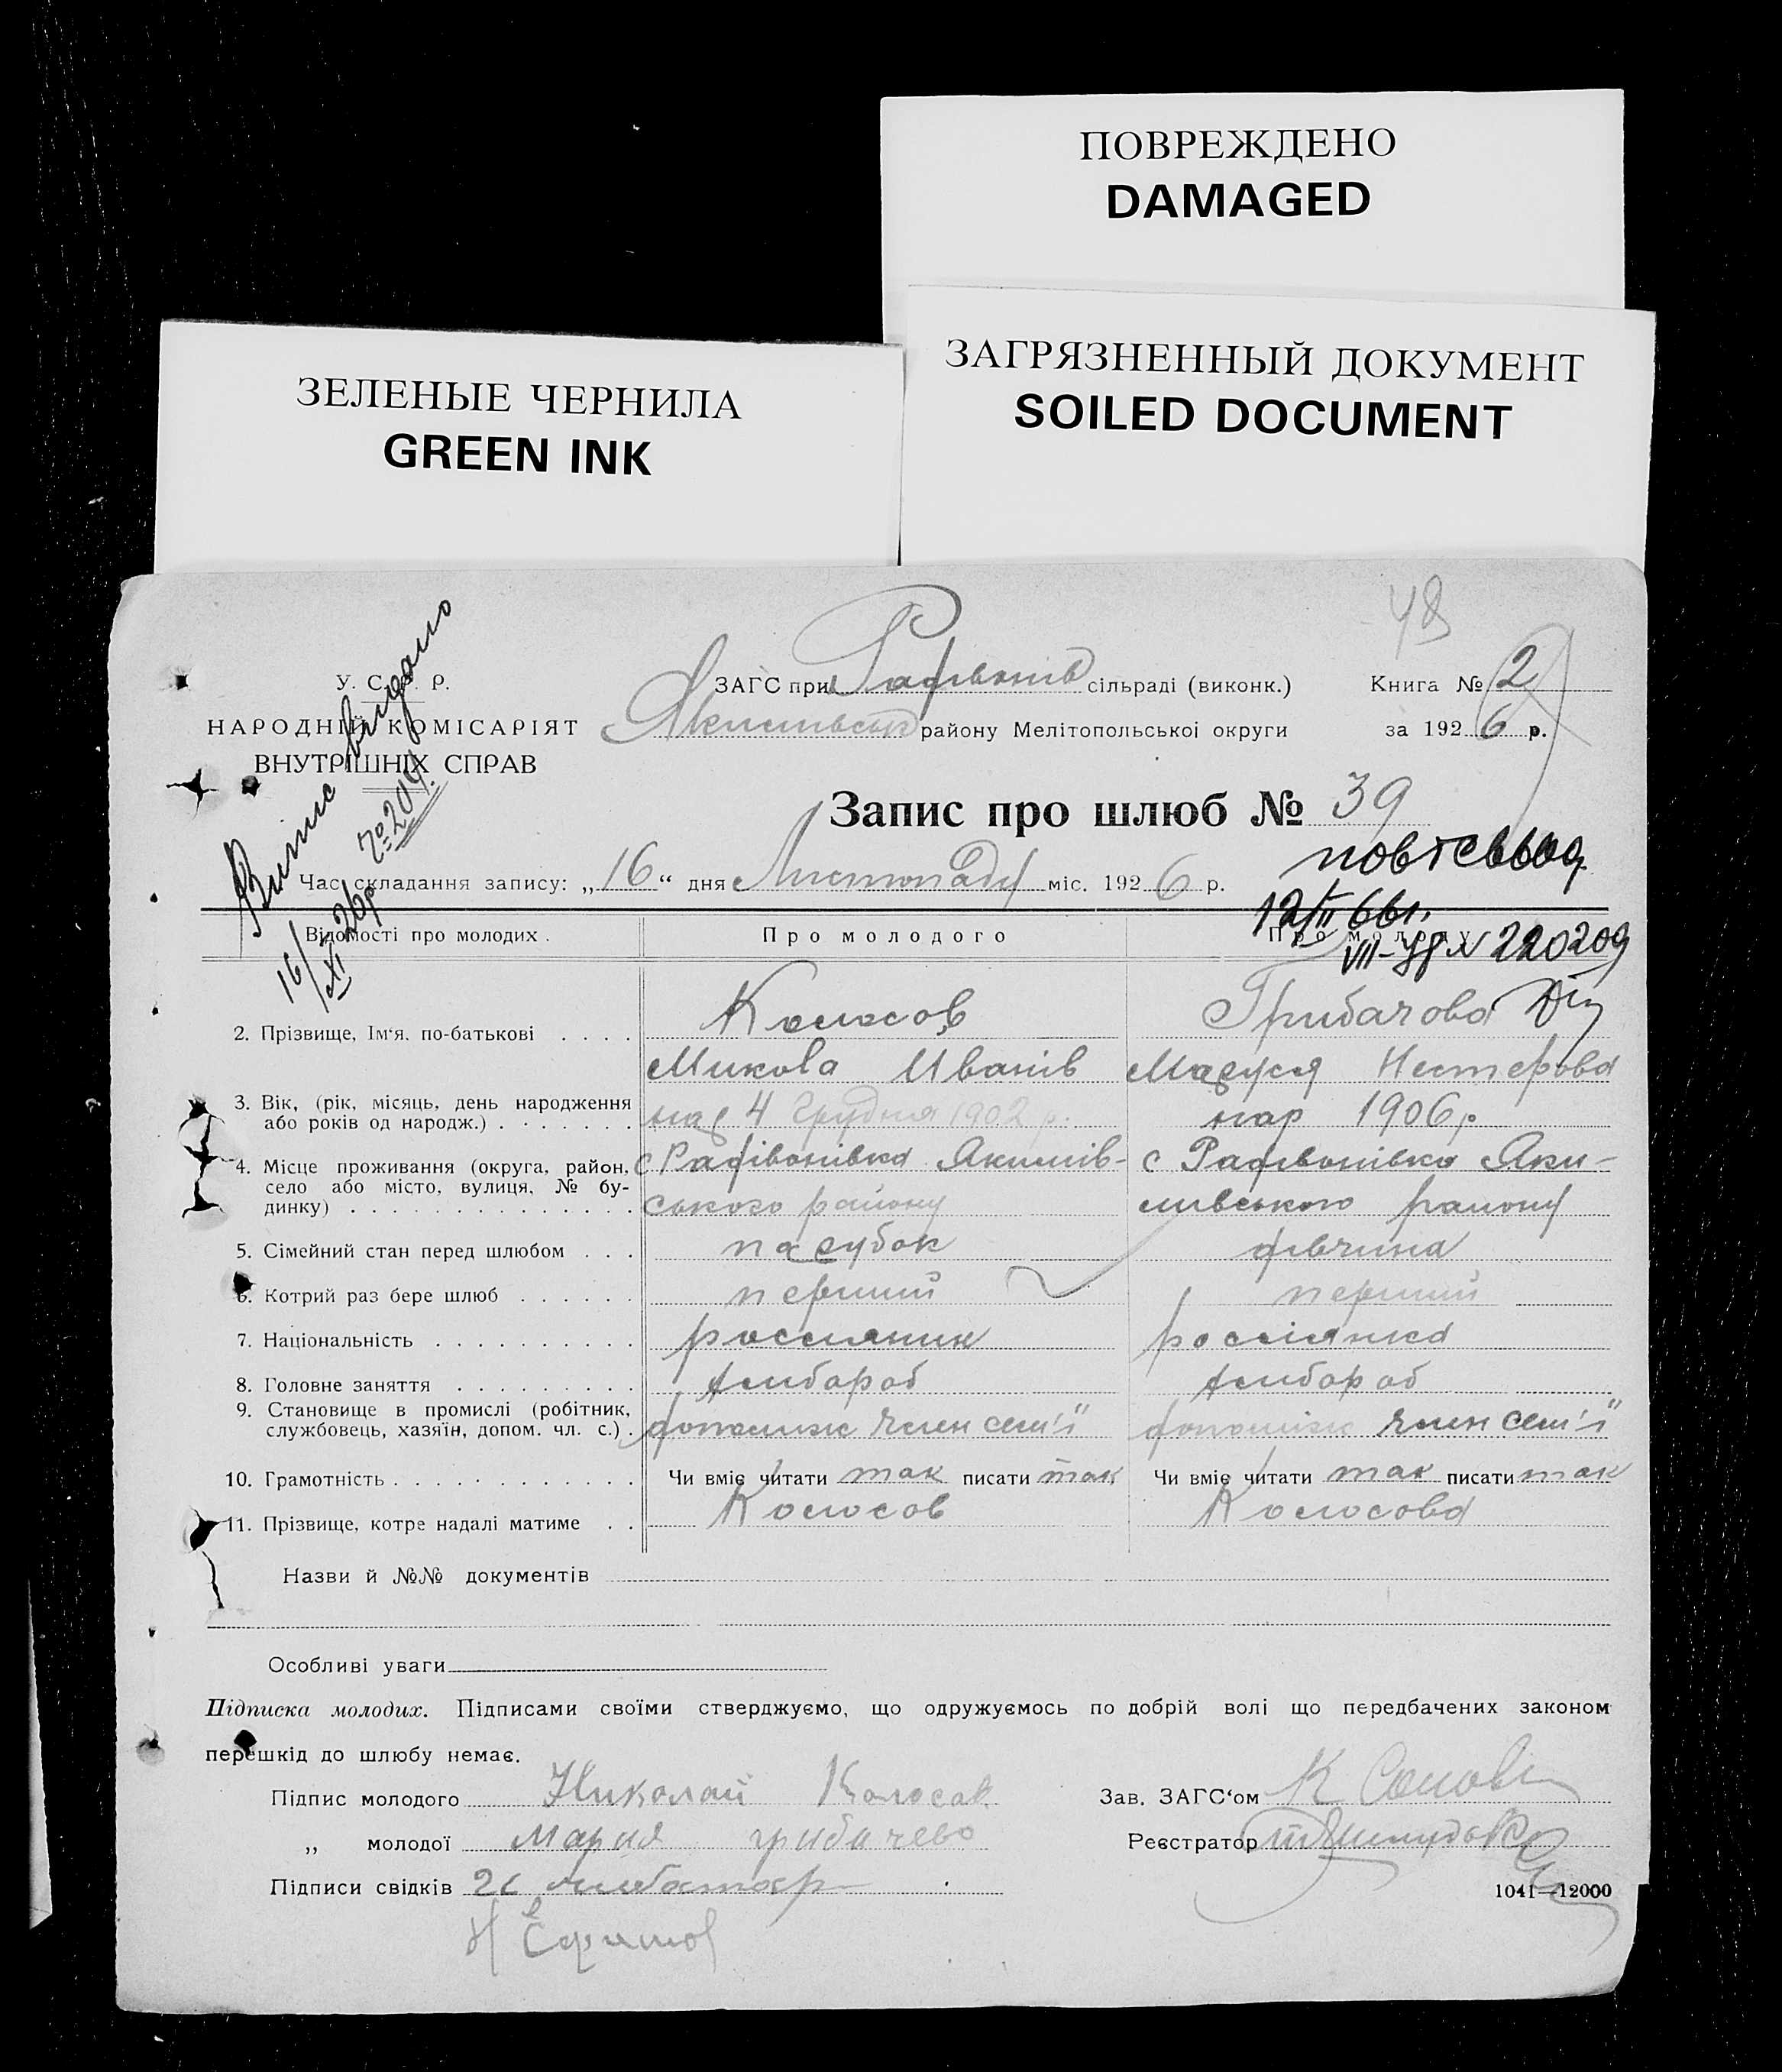 ПОВРЕЖДЕНО
DAMAGED
ЗАГРЯЗНЕННЫЙ ДОКУМЕНТ
SOILED DOCUMENT
ЗЕЛЕНЫЕ ЧЕРНИЛА
GREEN INK
48
У. С. Р. Р.
НАРОДНІЙ КОМІСАРІЯТ
ВНУТРІШНІХ СПРАВ
Випис видано
№ 204.
16/XI 26р
ЗАГС при Радівонів сільраді (виконк.)
Якимівськ району Мелітопольської округи
Книга № 2
за 1926 р.
Запис про шлюб № 39
Час складання запису: „16“ дня Листопаду міс. 1926 р.
12/II 66г.
VII-ЯР № 220209
Відомості про молодих.
Про молодого
Про молоду
2. Прізвище, Ім‘я. по-батькові . . . .
Колосов
Грибачова
Микола Іванів
Маруся Нестерова
3. Вік, (рік, місяць, день народження або років од народж.) . . . . . . .
нар 4 Грудня 1902 р.
нар 1906 р
4. Місце проживання (округа, район, село або місто, вулиця, № будинку) . . . . . . . . . . . . . .
с Радівонівка Якимів-
ського району
с Радівонівка Яки-
мівського району
5. Сімейний стан перед шлюбом . . .
парубок
дівчина
6. Котрий раз бере шлюб . . . . . .
перший
перший
7. Національність . . . . . . . . . .
россіянин
россіянка
8. Головне заняття . . . . . . . . .
хлібороб
хлібороб
9. Становище в промислі (робітник, службовець, хазяїн, допом. чл. с.) .
допоміж член сем'ї
допоміж член сем'ї
10. Грамотність . . . . . . . . . . . .
Чи вміє читати так писати так
Чи вміє читати так писати так
11. Прізвище, котре надалі матиме . .
Колосов
Колосова
Назви й №№ документів
Особливі уваги
Підписка молодих. Підписами своїми стверджуємо, що одружуємось по добрій волі що передбачених законом
перешкід до шлюбу немає.
Підпис молодого Николай Колосов
Зав. ЗАГС‘ом К
„ молодої Мария грибачево
Реєстратор
Підписи свідків
1041—12000